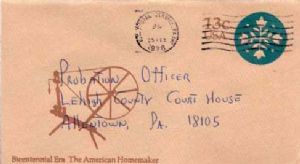 13c
USA
Probation Officer
Lehigh County Court House
Allentown, Pa. 18105
Bicentennial Era The American Homemaker